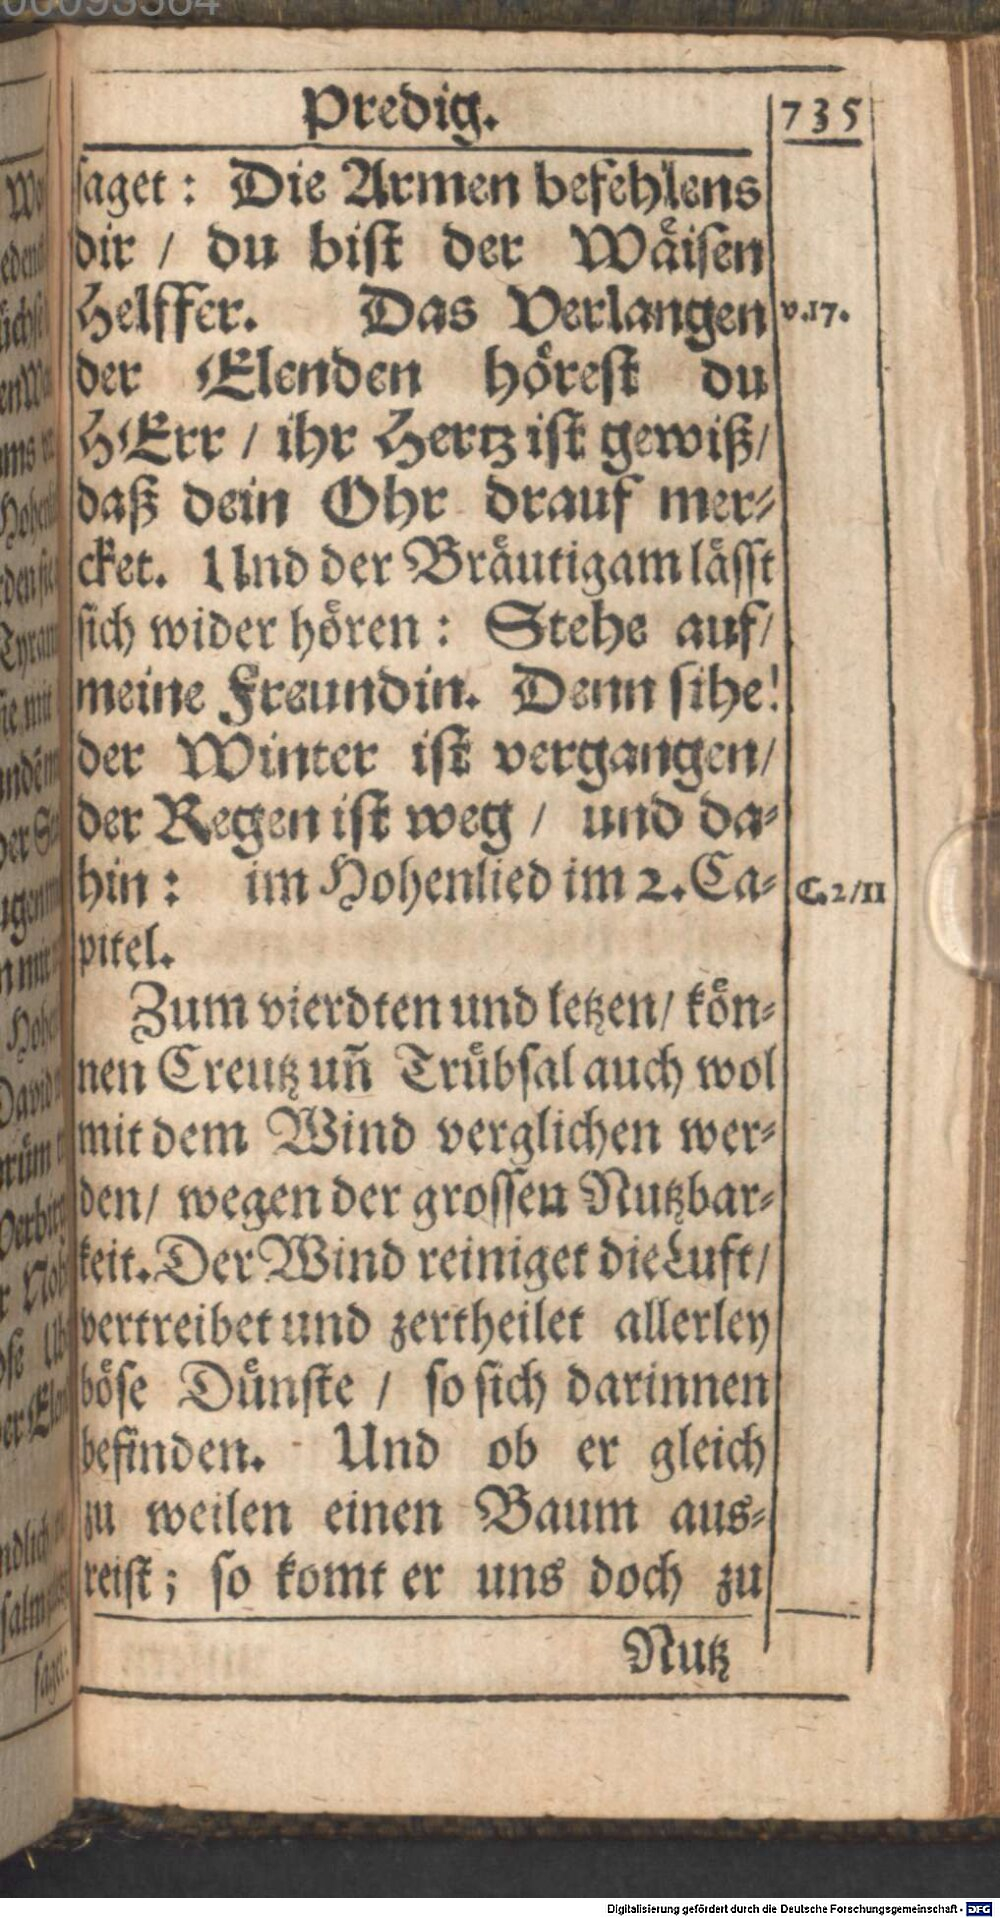 Predig.
735
saget: Die Armen befehlens
dir / du bist der Wäisen
Helffer. Das Verlangen
v.17.
der Elenden hörest du
HErr / ihr Hertz ist gewiß/
daß dein Ohr drauf mer-
cket. Und der Bräutigam lässt
sich wider hören: Stehe auf/
meine Freundin. Denn sihe!
der Winter ist vergangen/
der Regen ist weg / und da-
hin: im Hohenlied im 2. Ca-
C.2/11
pitel.
Zum vierdten und letzen/ kön-
nen Creutz uñ Trübsal auch wol
mit dem Wind verglichen wer-
den/ wegen der grossen Nutzbar-
keit. Der Wind reiniget die Luft/
vertreibet und zertheilet allerley
böse Dünste / so sich darinnen
befinden. Und ob er gleich
zu weilen einen Baum aus-
reist; so komt er uns doch zu
Nutz
Digitalisierung gefördert durch die Deutsche Forschungsgemeinschaft - DFG